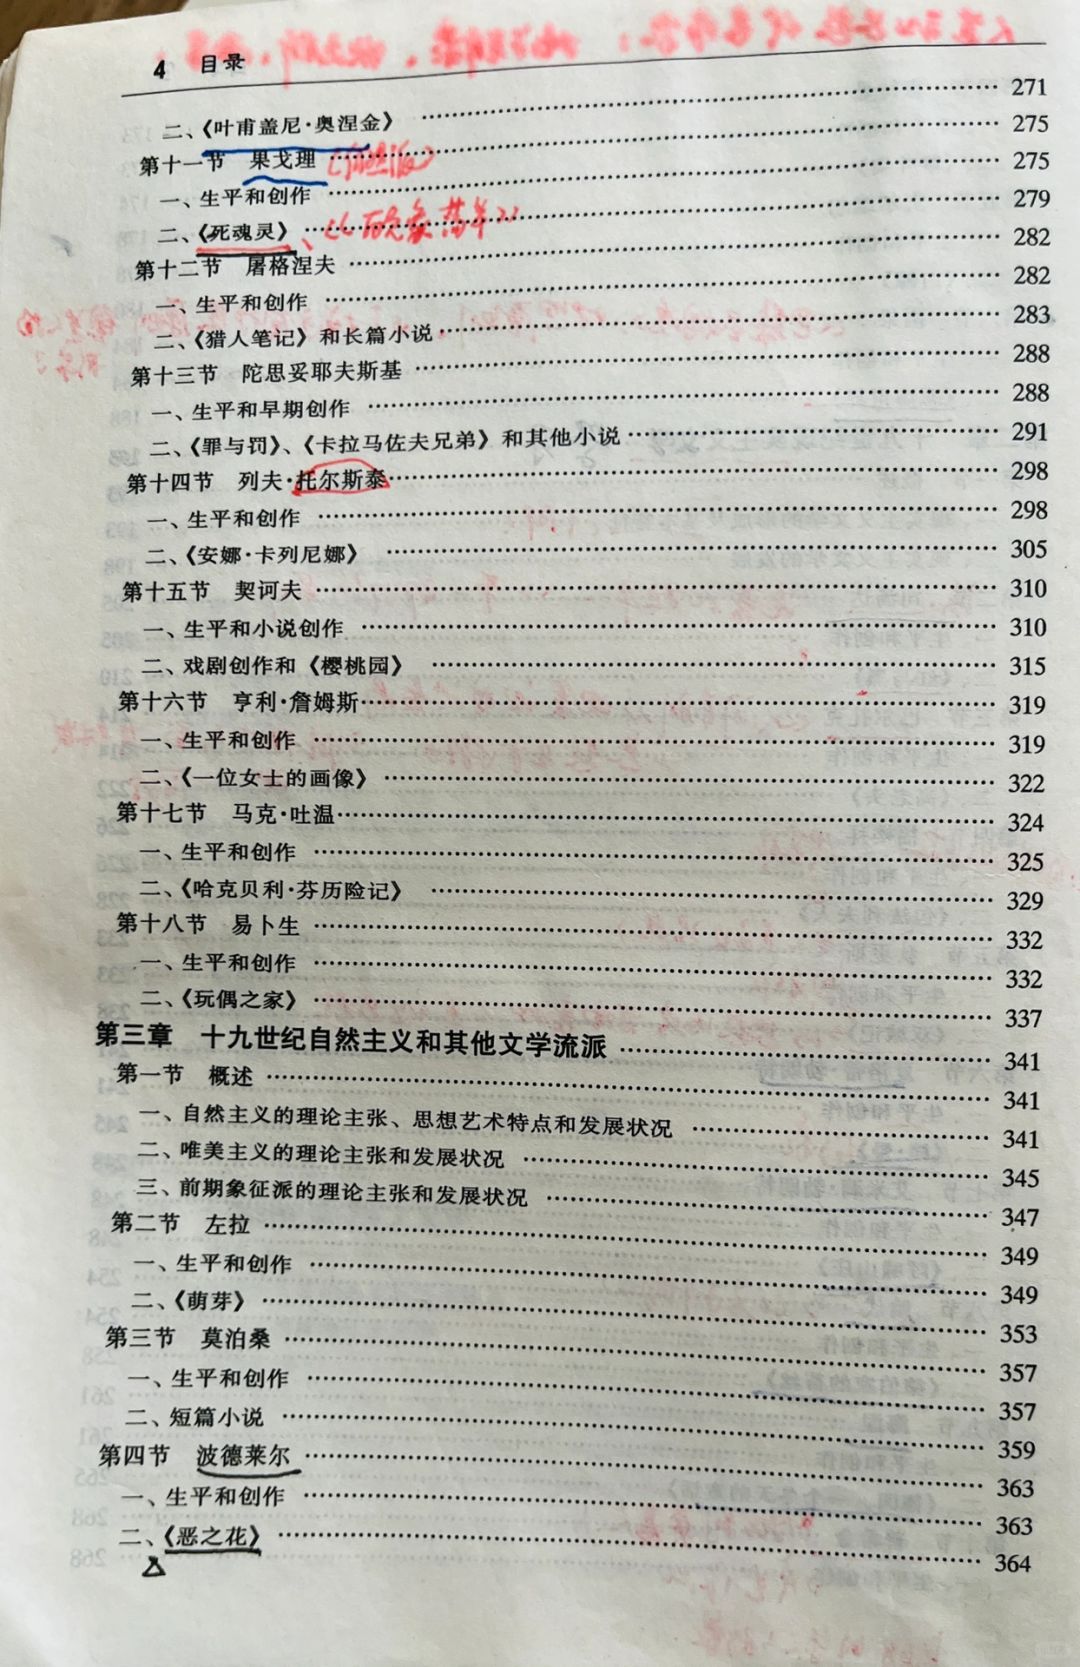 4 目录
二、《叶甫盖尼·奥涅金》 …… 271
第十一节 果戈理 (自然派) …… 275
一、生平和创作 …… 275
二、《死魂灵》 …… 279
第十二节 屠格涅夫 …… 282
一、生平和创作 …… 282
二、《猎人笔记》和长篇小说 …… 283
第十三节 陀思妥耶夫斯基 …… 288
一、生平和早期创作 …… 288
二、《罪与罚》、《卡拉马佐夫兄弟》和其他小说 …… 291
第十四节 列夫·托尔斯泰 …… 298
一、生平和创作 …… 298
二、《安娜·卡列尼娜》 …… 305
第十五节 契诃夫 …… 310
一、生平和小说创作 …… 310
二、戏剧创作和《樱桃园》 …… 315
第十六节 亨利·詹姆斯 …… 319
一、生平和创作 …… 319
二、《一位女士的画像》 …… 322
第十七节 马克·吐温 …… 324
一、生平和创作 …… 325
二、《哈克贝利·芬历险记》 …… 329
第十八节 易卜生 …… 332
一、生平和创作 …… 332
二、《玩偶之家》 …… 337
第三章 十九世纪自然主义和其他文学流派 …… 341
第一节 概述 …… 341
一、自然主义的理论主张、思想艺术特点和发展状况 …… 341
二、唯美主义的理论主张和发展状况 …… 345
三、前期象征派的理论主张和发展状况 …… 347
第二节 左拉 …… 349
一、生平和创作 …… 349
二、《萌芽》 …… 353
第三节 莫泊桑 …… 357
一、生平和创作 …… 357
二、短篇小说 …… 359
第四节 波德莱尔 …… 363
一、生平和创作 …… 363
二、《恶之花》 …… 364